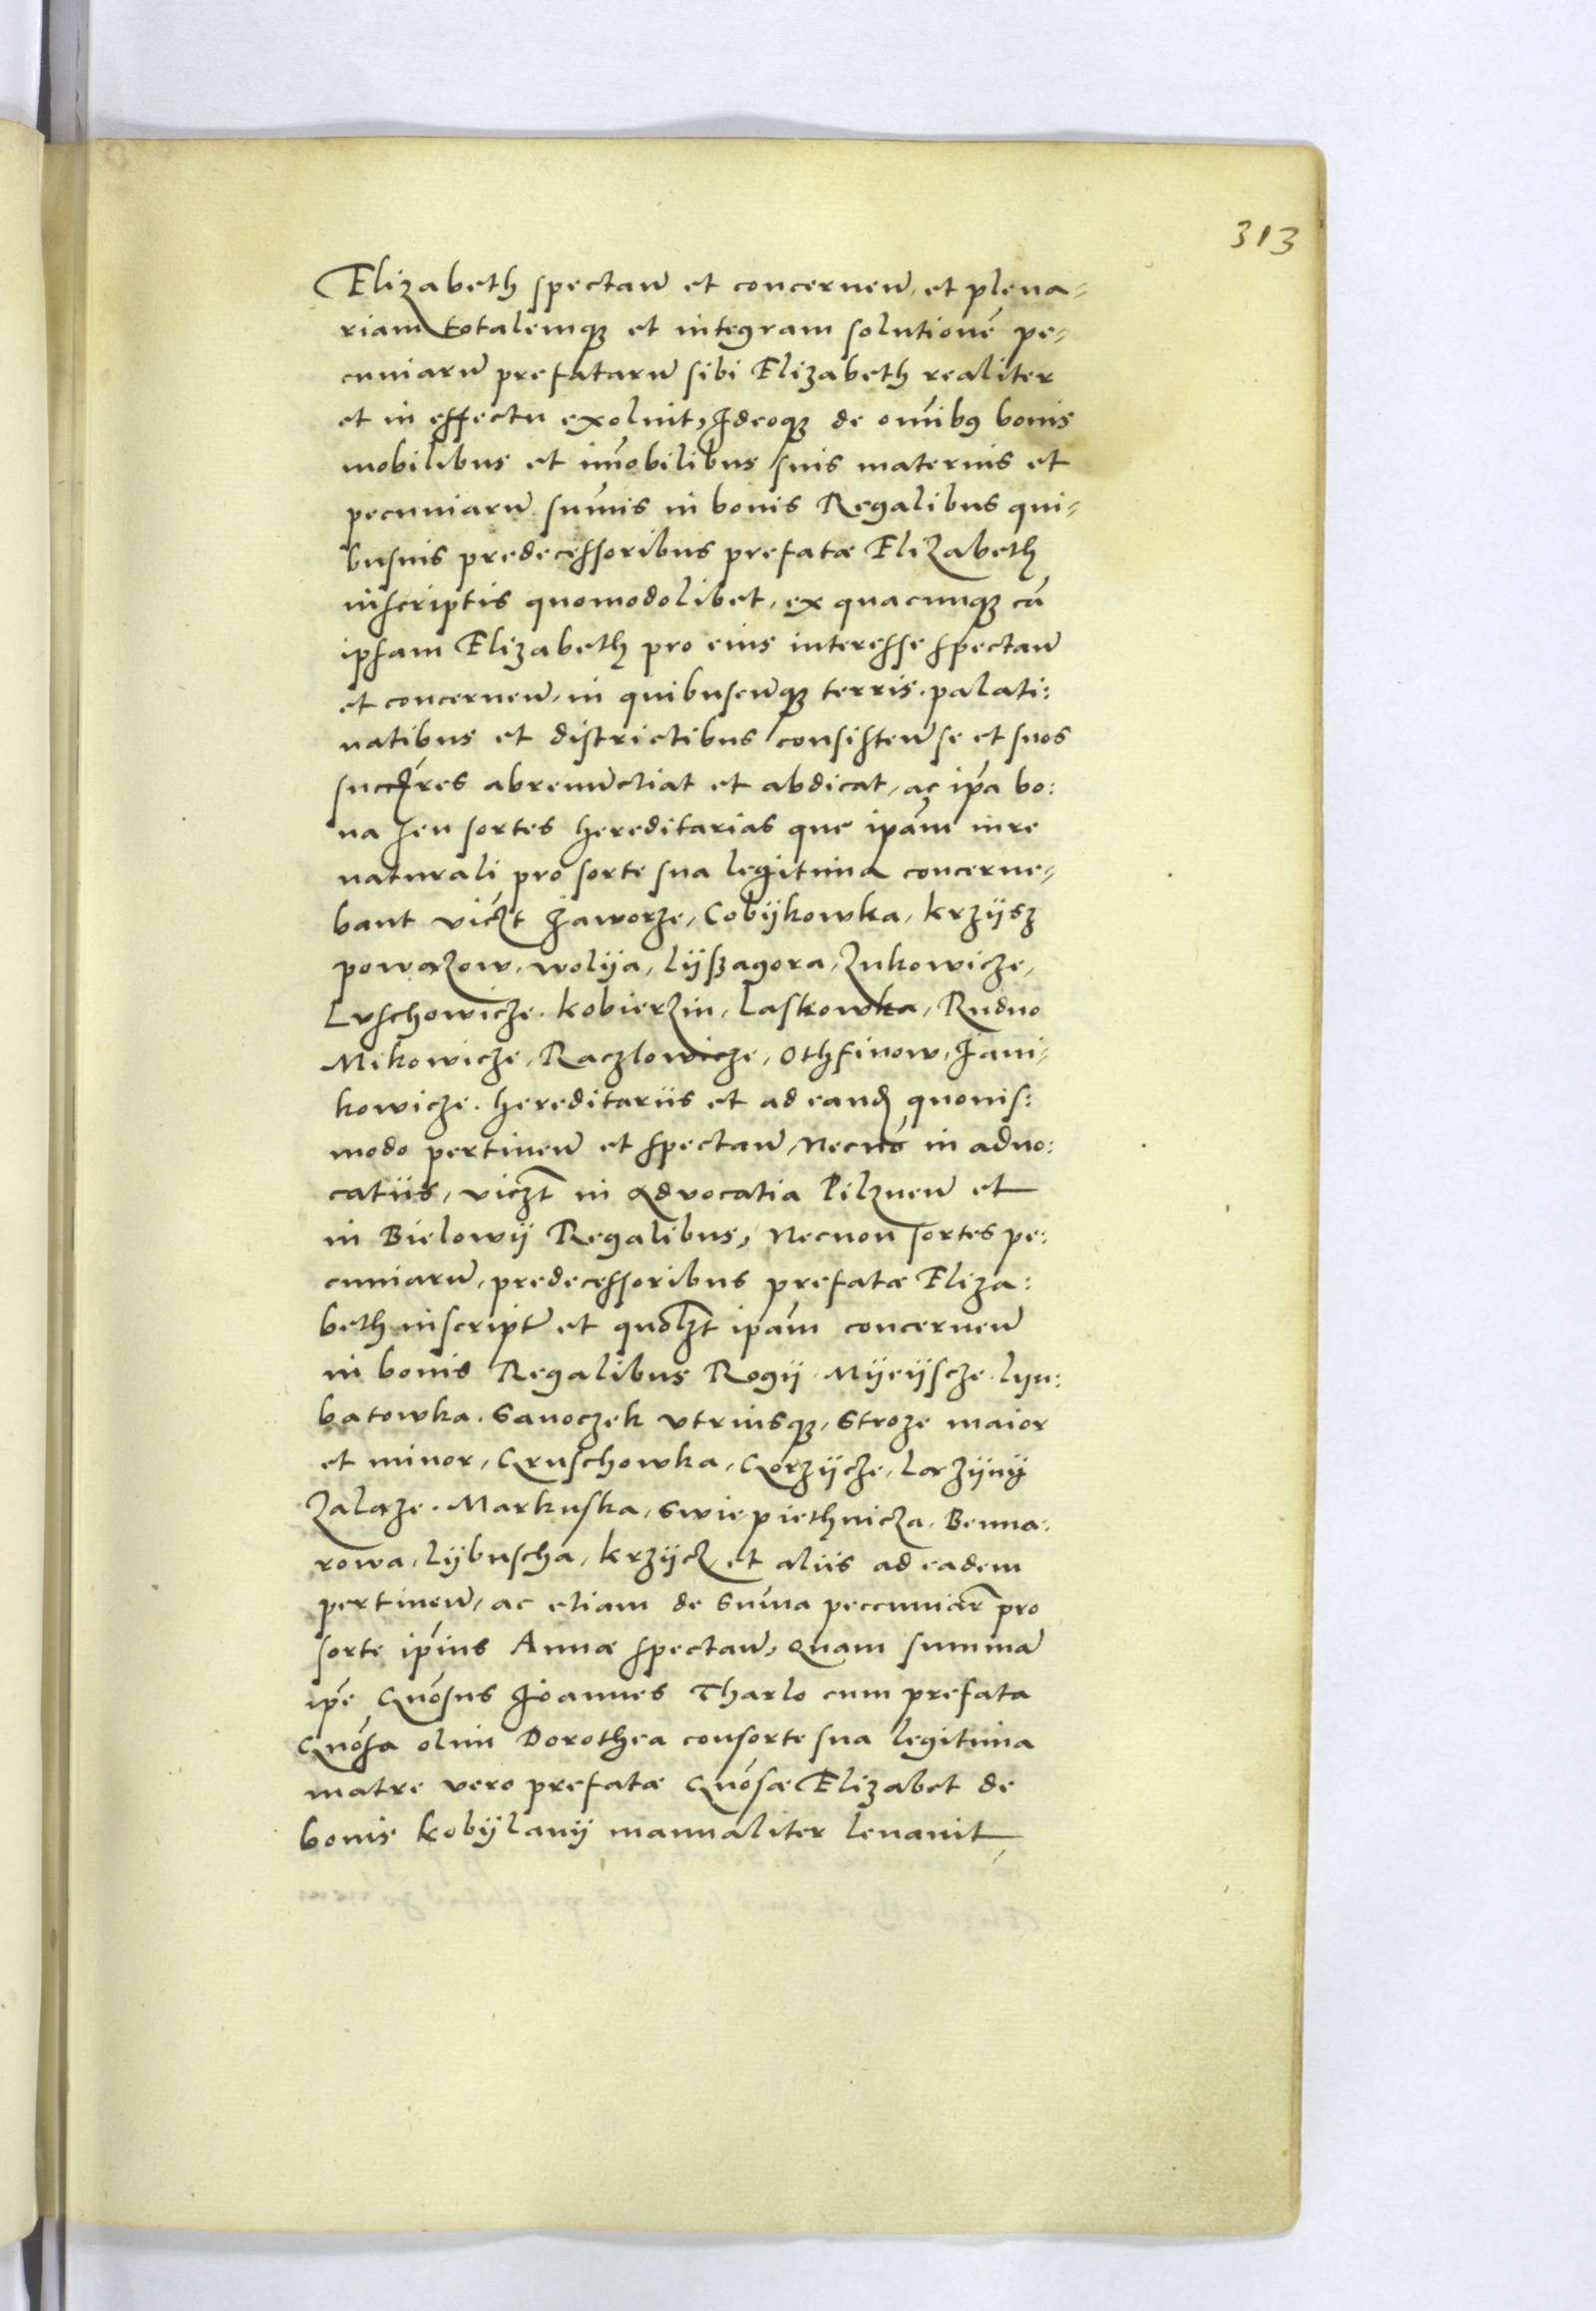 313
Elizabeth spectan̄ et concernen̄, et plena-
riam totalemqꝫ et integram solutionē pe-
cuniarū prefatarū sibi Elizabeth realiter
et in effectu exoluit, Ideoqꝫ de om̄ibꝰ bonis
mobilibus et im̄obilibus suis maternis et
pecuniarū sum̄is in bonis Regalibus qui-
busuis predecessoribus prefatæ Elizabeth
inscriptis quomodolibet, ex quacunqꝫ cā
ipsam Elizabeth pro eius interesse spectan̄
et concernen̄, in quibuscūqꝫ terris, palati:
natibus et districtibus consisten̄ se et suos
succēres abrenūctiat et abdicat, ac ip̄a bo:
na seu sortes hereditarias que ip̄am in re
naturali pro sorte sua legitima concerne-
bant vicꝫt Jaworze, Cobÿkowka, Krzÿsz
powazow, wolÿa, Lÿszagora, Zukowicze,
Luschowicze. Kobierzin, Laskowka, Rudno
Mikowicze, Raczlowicze, Othfinow, Jani-
kowicze. hereditariis et ad eand̄ quouis:
modo pertinen̄ et spectan̄, Necnō in aduo:
catiis, vicꝫt in Advocatia Pilznen̄ et
in Bielowÿ Regalibus, Necnon sortes pe:
cuniarū, predecessoribus prefatæ Eliza:
beth inscript̄ et quolꝫt ip̄am concernen̄
in bonis Regalibus Rogÿ. Mÿeÿscze. Lyu:
batowka. Sanoczek vtriusqꝫ, Stroze maior
et minor, Gruschowka, Gorzÿcze, Lazÿnÿ
Zalaze. Markuska, Swiepiethnicza. Benna:
rowa, Lÿbuscha, Krzÿcz et aliis ad eadem
pertinen̄, ac etiam de Sum̄a peccuniar̄ pro
sorte ip̄ius Annæ spectan̄, Quam summā
ip̄e Gn̄osus Joannes Tharlo cum prefata
Gn̄osa olim Dorothea consorte sua legitima
matre vero prefatæ Gn̄osæ Elizabet de
bonis Kobÿlanÿ manualiter leuauit,